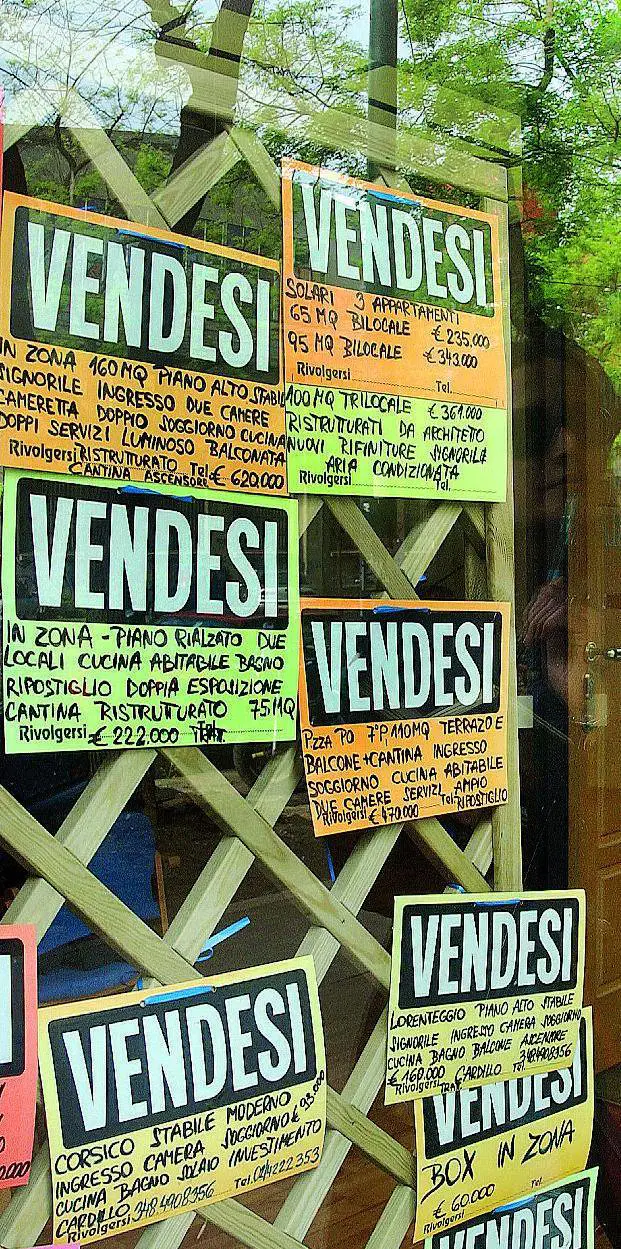 VENDESI
IN ZONA 160 MQ PIANO ALTO STABILE
SIGNORILE INGRESSO DUE CAMERE
CAMERETTA DOPPIO SOGGIORNO CUCINA
DOPPI SERVIZI LUMINOSO BALCONATA
Rivolgersi RISTRUTTURATO Tel. € 620.000
CANTINA ASCENSORE
VENDESI
SOLARI 3 APPARTAMENTI
65 MQ BILOCALE € 235.000
95 MQ BILOCALE € 343.000
Rivolgersi Tel.
100 MQ TRILOCALE € 361.000
RISTRUTTURATI DA ARCHITETTO
NUOVI RIFINITURE SIGNORILE
ARIA CONDIZIONATA
Rivolgersi Tel.
VENDESI
IN ZONA - PIANO RIALZATO DUE
LOCALI CUCINA ABITABILE BAGNO
RIPOSTIGLIO DOPPIA ESPOSIZIONE
CANTINA RISTRUTTURATO 75 MQ
Rivolgersi € 222.000 TRAT.
VENDESI
P.zza PO 7°P. 110MQ TERRAZO E
BALCONE + CANTINA INGRESSO
SOGGIORNO CUCINA ABITABILE
DUE CAMERE SERVIZI AMPIO
Rivolgersi € 470.000 Tel. RIPOSTIGLIO
VENDESI
LORENTEGGIO PIANO ALTO STABILE
SIGNORILE INGRESSO CAMERA SOGGIORNO
CUCINA BAGNO BALCONE ASCENSORE
€ 160.000 CARDILLO 348.4908356
Rivolgersi TRAT. Tel.
VENDESI
CORSICO STABILE MODERNO
INGRESSO CAMERA SOGGIORNO €
CUCINA BAGNO SOLAIO INVESTIMENTO
CARDILLO 348.4908356 Tel.
Rivolgersi
VENDESI
BOX IN ZONA
€ 60.000
Rivolgersi Tel.
VENDESI